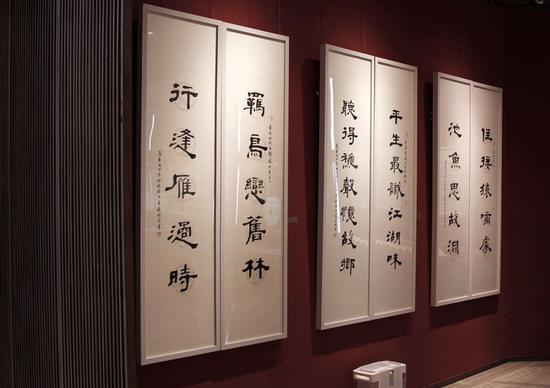 住接猿啼處
池魚思故淵
平生最識江湖味
聽得龝聲憶故鄉
羈鳥戀舊林
行逢雁過時